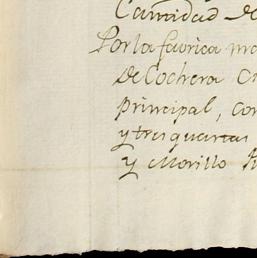 Cantidad de
Por la favrica ma
de Cochera
principal, con
y tres quartas
y Morillo